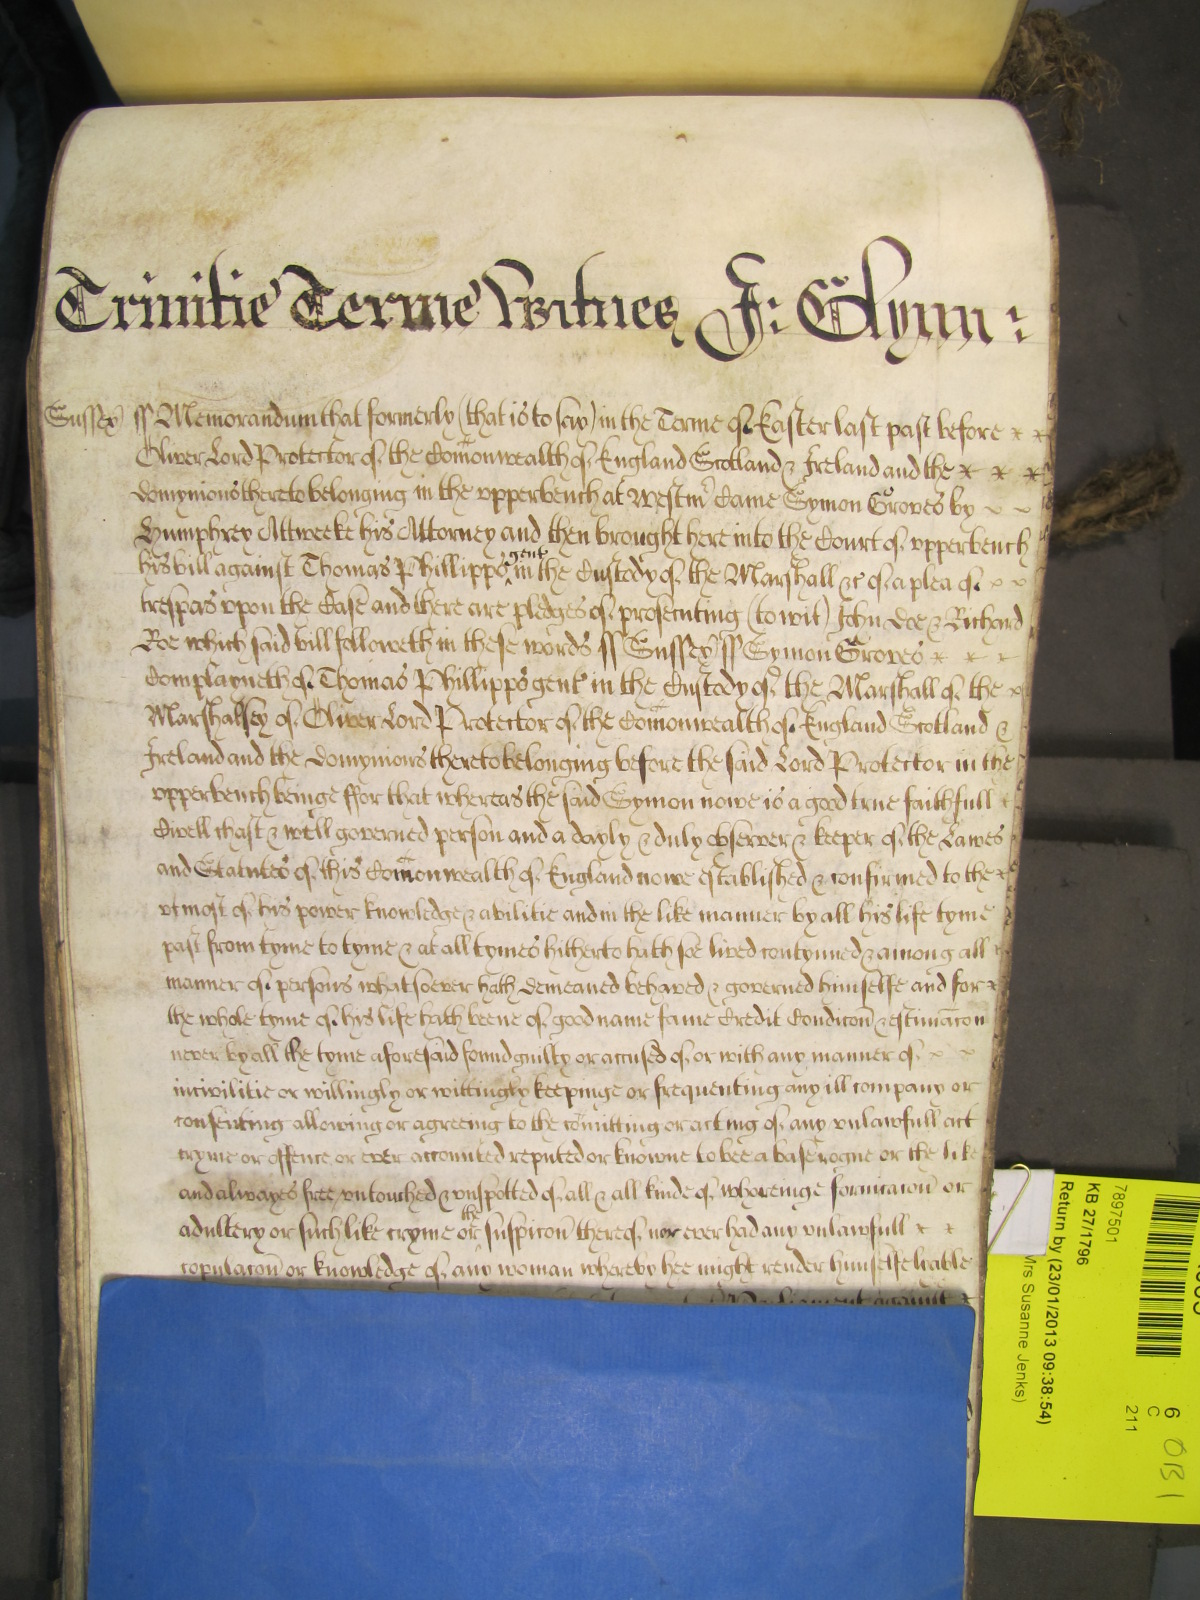 Trinitie Terme Witnes J: Glynn:
Sussex ss Memorandum that formerly (that is to say) in the Terme of Easter last past before
Oliver Lord Protector of the Com̄onwealth of England Scotland & Ireland and the
domynions thereto belonging in the upperbench at Westm̄ Came Symon Groves by
Humphrey Attweeke his Attorney and then brought here into the Court of upperbench
his bill against Thomas Phillipps gent in the Custody of the Marshall &c of a plea of
trespas upon the Case and there are pledges of prosecuting (to wit) John Doe & Richard
Roe which said bill followeth in these words ss Sussex ss Symon Groves
Complayneth of Thomas Phillipps gent in the Custody of the Marshall of the
Marshalsey of Oliver Lord Protector of the Com̄onwealth of England Scotland &
Ireland and the domynions thereto belonging before the said Lord Protector in the
upperbench beinge ffor that whereas the said Symon nowe is a good true faithfull
Civell chast & well governed person and a dayly & duly observer & keeper of the Lawes
and Statutes of this Com̄onwealth of England nowe established & confirmed to the
utmost of his power knowledge & abilitie and in the like manner by all his life tyme
past from tyme to tyme & at all tymes hitherto hath soe lived contynued & among all
manner of persons whatsoever hath demeaned behaved & governed himselfe and for
the whole tyme of his life hath beene of good name fame Credit Condicōn & estimacōn
never by all the tyme aforesaid found guilty or accused of or with any manner of
incivilitie or willingly or wittingly keepinge or frequenting any ill company or
consenting allowing or agreeing to the com̄itting or acting of any unlawfull act
cryme or offence or ever accounted reputed or knowne to bee a base rogue or the like
and alwayes free untouched & unspotted of all & all kinde of whoreinge fornicacōn or
adultery or such like cryme or the suspicōn thereof nor ever had any unlawfull
copulacōn or knowledge of any woman whereby hee might render himselfe liable
Parliament against
7897501
KB 27/1796
Return by (23/01/2013 09:38:54)
Mrs Susanne Jenks)
6
C
211
OB 1